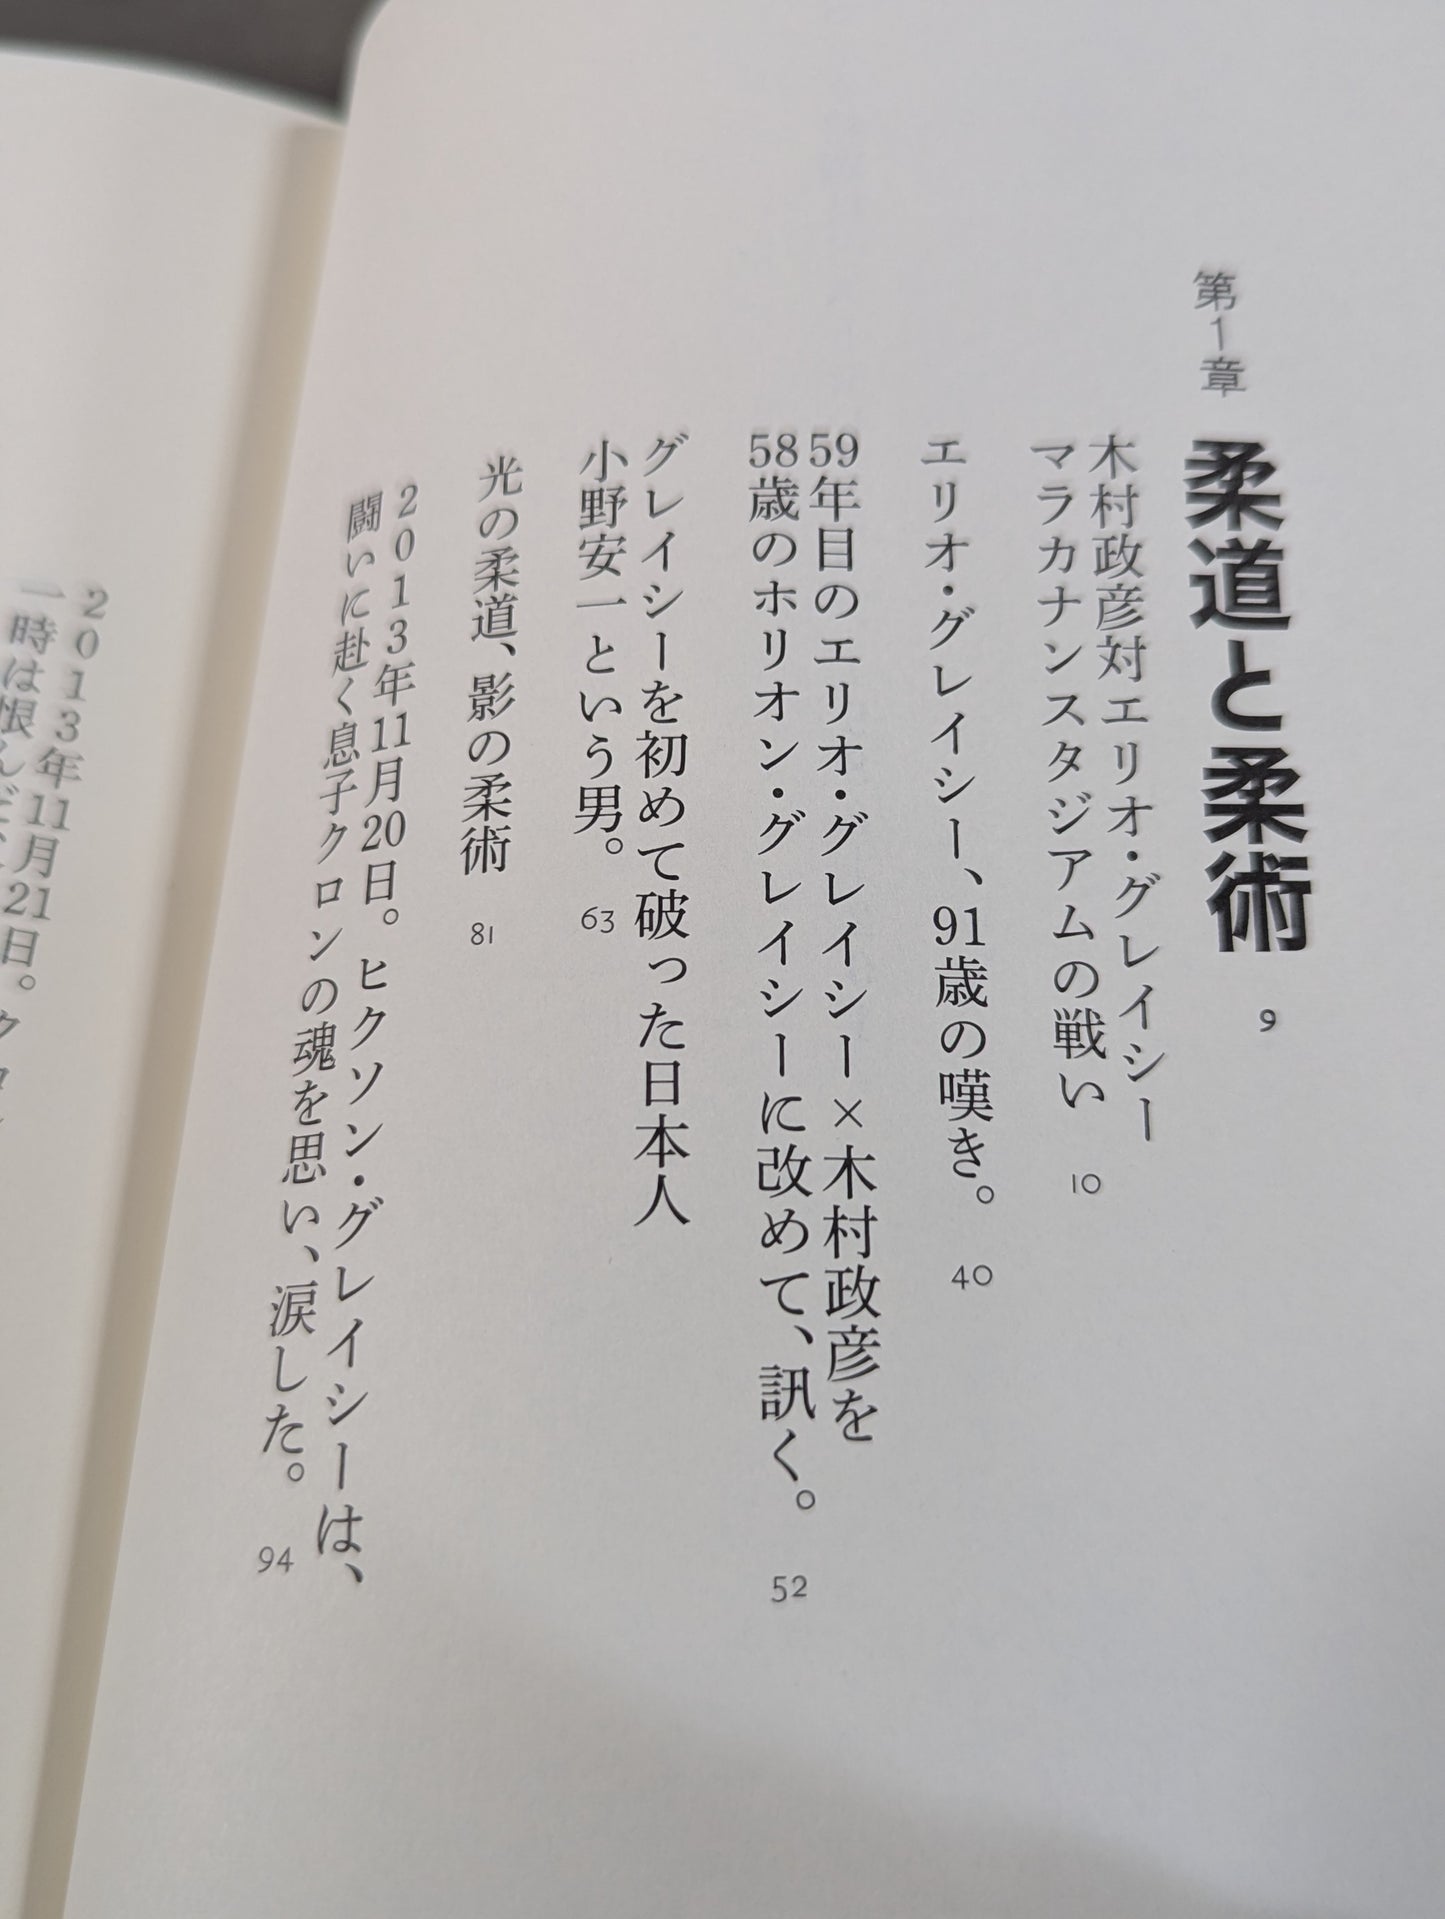 第1章 柔道と柔術 9
木村政彦対エリオ・グレイシー
マラカナンスタジアムの戦い 10
エリオ・グレイシー、91歳の嘆き。 40
59年目のエリオ・グレイシー×木村政彦を
58歳のホリオン・グレイシーに改めて、訊く。 52
グレイシーを初めて破った日本人
小野安一という男。 63
光の柔道、影の柔術 81
2013年11月20日。ヒクソン・グレイシーは、
闘いに赴く息子クロンの魂を思い、涙した。 94
2013年11月21日。
一時は恨んだ